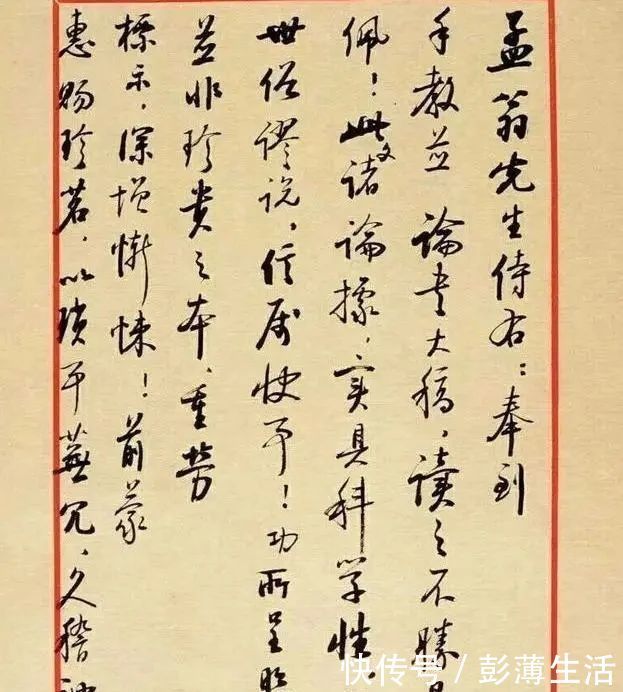 孟翁先生侍右：奉到
手教並 論書大稿，讀之不勝
佩！此文諸論據，實具科学性，
世俗謬說，信属快事！功所呈
並非珍貴之本，重勞
標示，深增慚悚！前蒙
惠賜珍茗，以瑣事蕪冗，久稽
快传号 / 彭薄生活